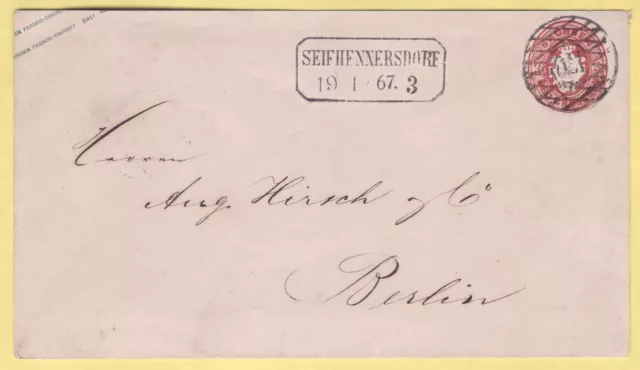 SEIFHENNERSDORF
19 1 67. 3
Herren
Aug. Hirsch & Co
Berlin